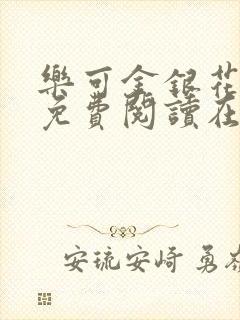 樂可金銀花
免費閱讀在
安琉安崎 勇